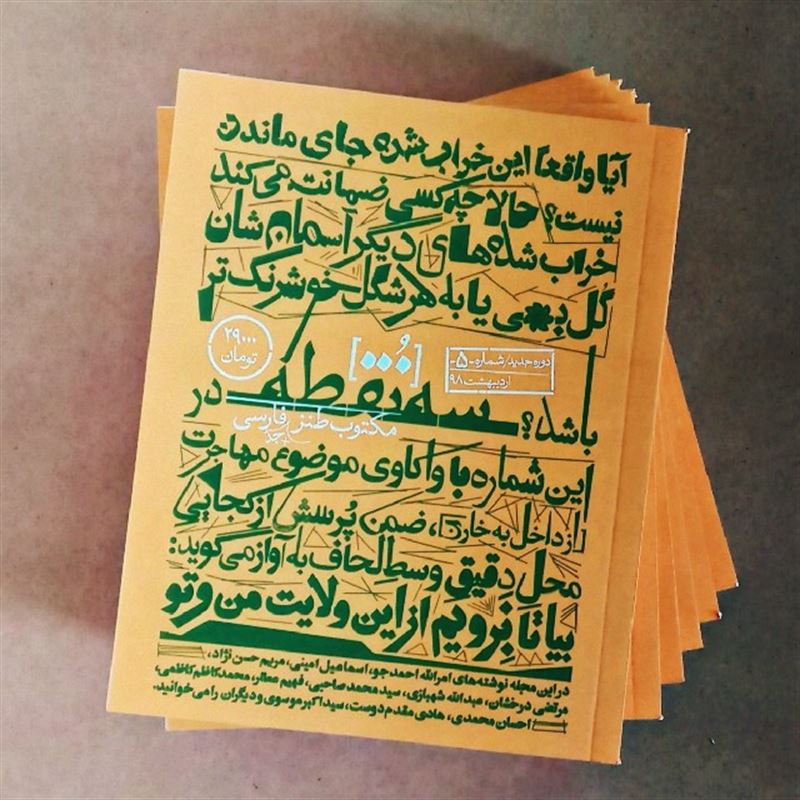 آیا واقعا این خراب شده جای ماندن
نیست؟ حالا چه کسی ضمانت می‌کند
خراب شده‌های دیگر آسمان شان
گل بهی یا به هر شکل خوشرنگ‌تر
باشد؟
سه نقطه
در
[ۀ...]
دوره جدید/شماره -۵-
اردیبهشت ۹۸
۲۹۰۰۰
تومان
مکتوب طنز فارسی
جد
این شماره با واکاوی موضوع مهاجرت
[از داخل به خارج]، ضمن پرسش از کجاییِ
محل دقیقِ وسطِ لحاف به آواز می‌گوید:
بیا تا برویم از این ولایت من و تو
در این مجله نوشته‌های امرالله احمدجو، اسماعیل امینی، مریم حسن نژاد،
مرتضی درخشان، عبدالله شهبازی، سید محمد صاحبی، فهیم عطار، محمدکاظم کاظمی،
احسان محمدی، هادی مقدم دوست، سید اکبر موسوی و دیگران را می‌خوانید.